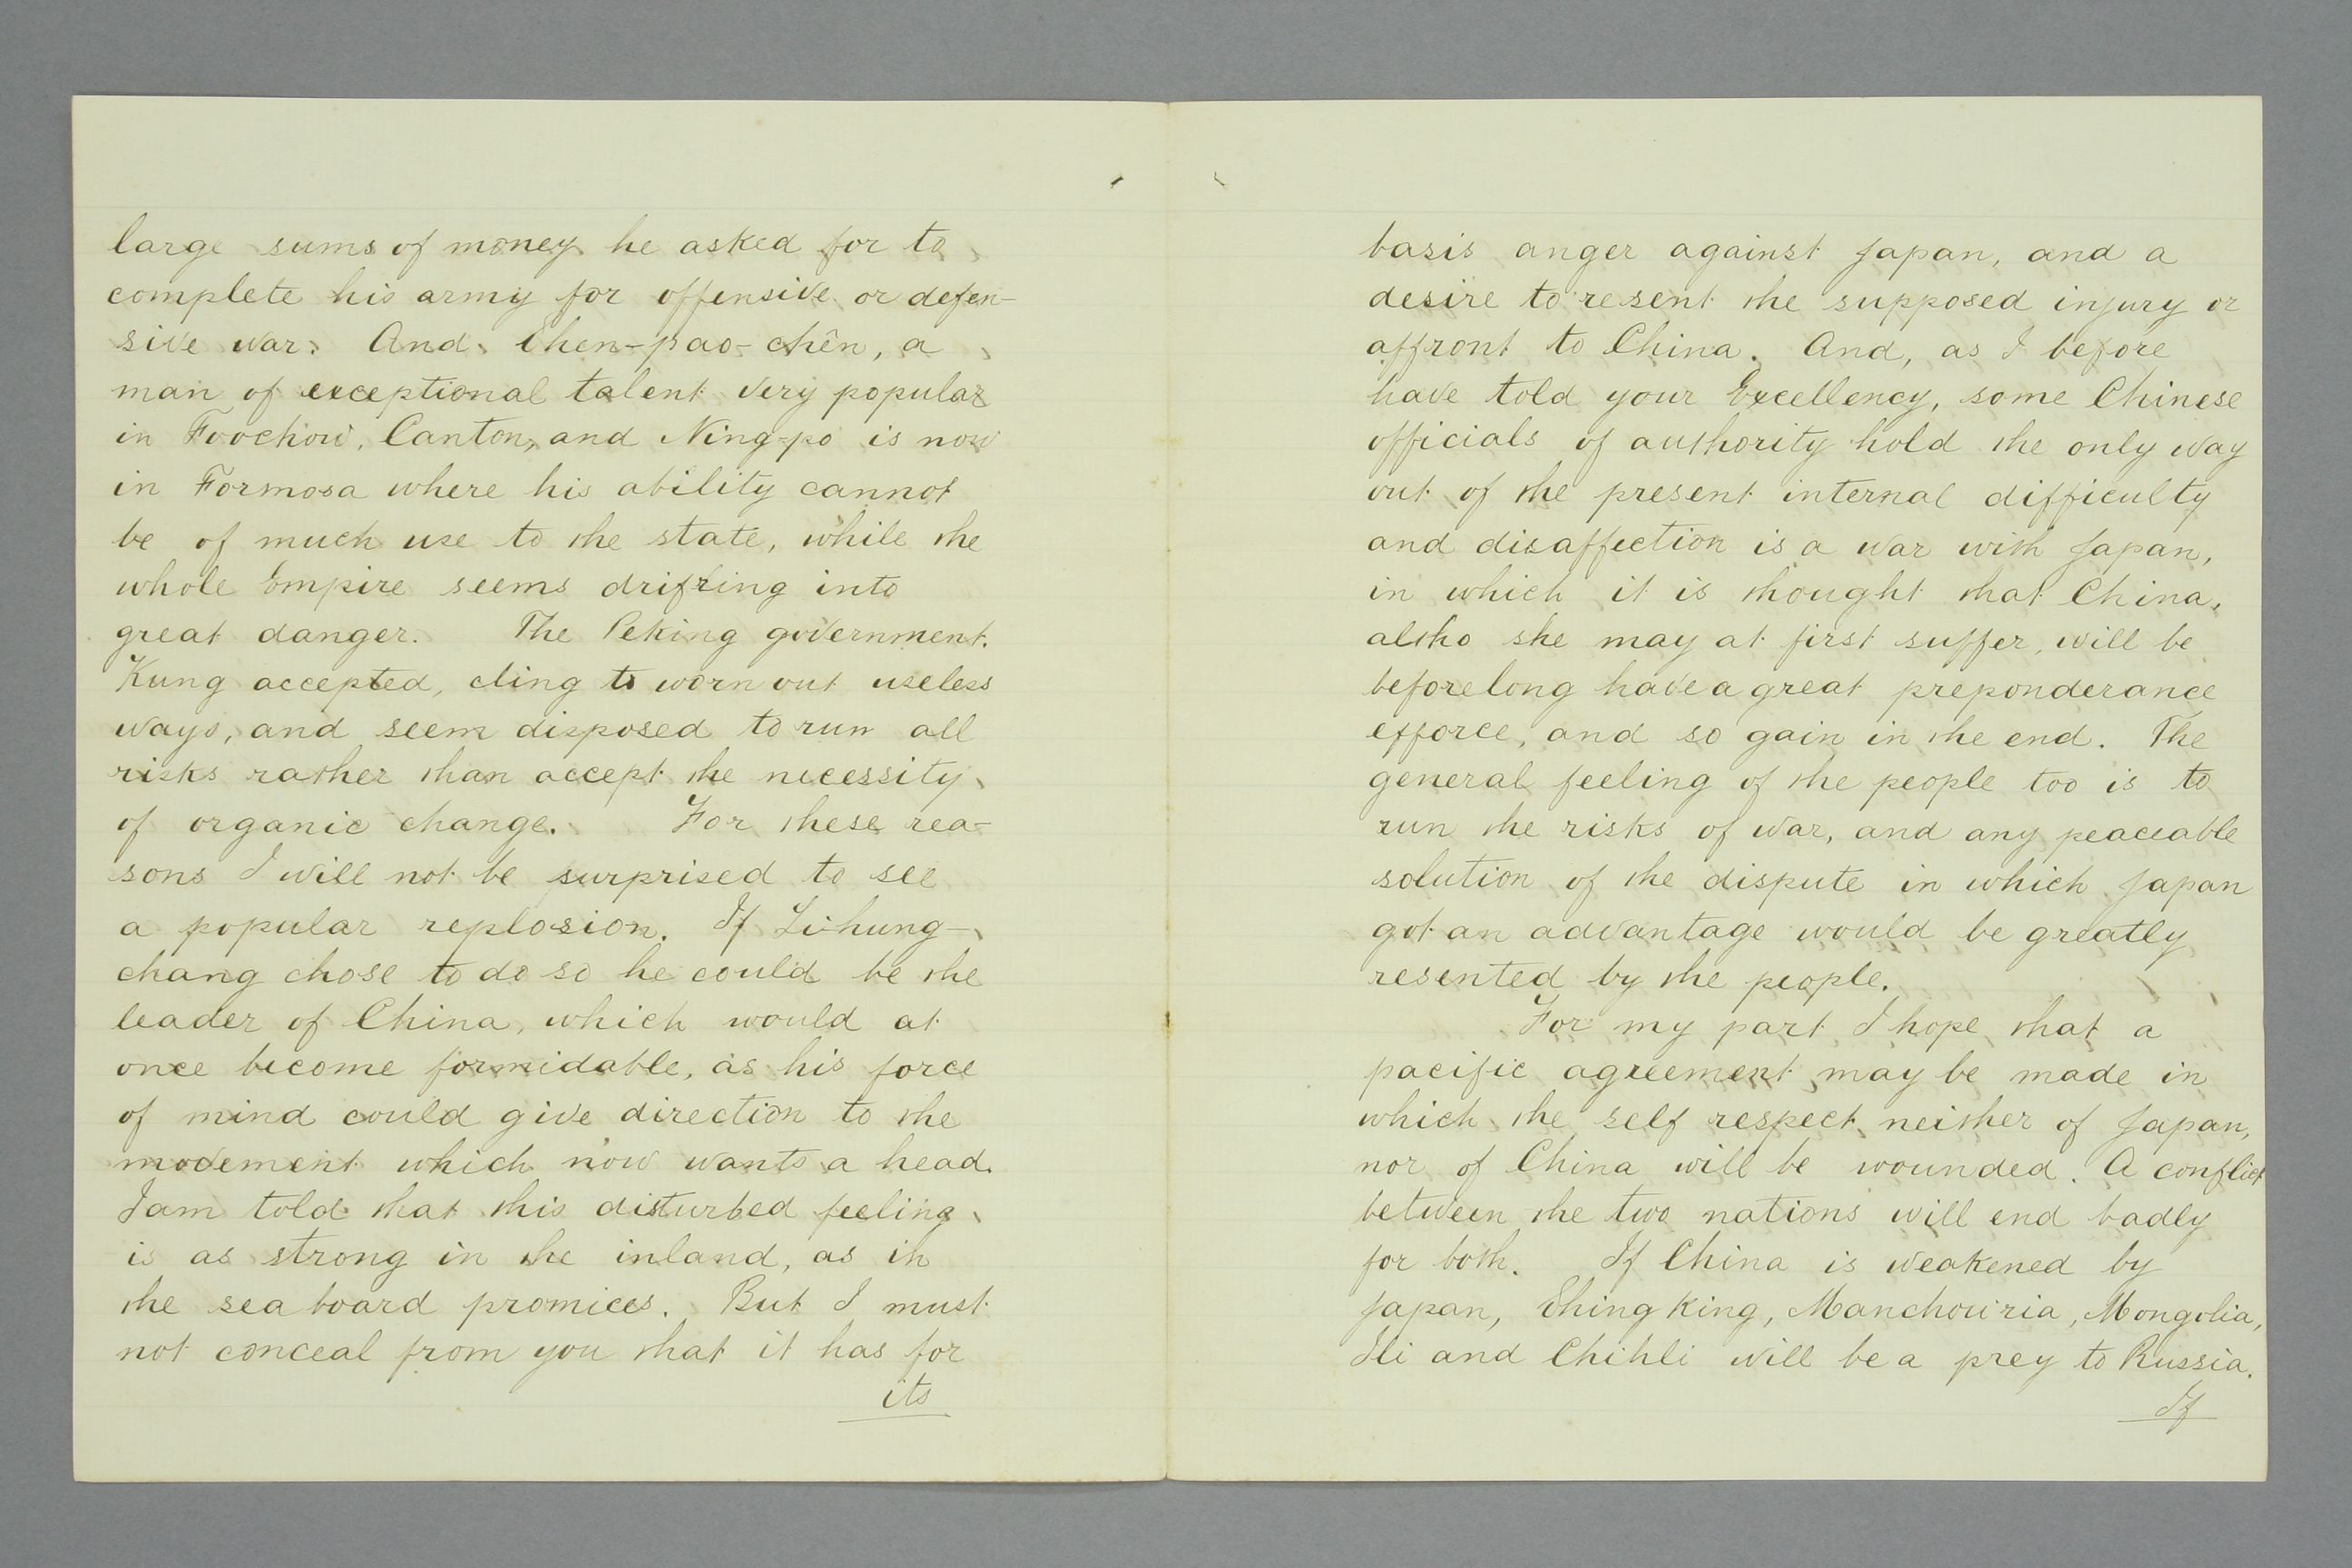 large sums of money he asked for to
complete his army for offensive or defen-
sive war. And Chen-pao-chên, a
man of exceptional talent very popular
in Foochow, Canton, and Ning-po is now
in Formosa where his ability cannot
be of much use to the state, while the
whole Empire seems drifting into
great danger. The Peking government.
Kung accepted, cling to worn out useless
ways, and seem disposed to run all
risks rather than accept the necessity
of organic change. For these rea-
sons I will not be surprised to see
a popular replosion. If Li-hung-
chang chose to do so he could be the
leader of China, which would at
once become formidable, as his force
of mind could give direction to the
movement which now wants a head.
I am told that this disturbed feeling
is as strong in the inland, as in
the sea board promices. But I must
not conceal from you that it has for
its
basis anger against Japan, and a
desire to resent the supposed injury or
affront to China. And, as I before
have told your Excellency, some Chinese
officials of authority hold the only way
out of the present internal difficulty
and disaffection is a war with Japan,
in which it is thought that China,
altho she may at first suffer, will be
before long have a great preponderance
of force, and so gain in the end. The
general feeling of the people too is to
run the risks of war, and any peaceable
solution of the dispute in which Japan
got an advantage would be greatly
resented by the people.
For my part I hope that a
pacific agreement may be made in
which the self respect neither of Japan,
nor of China will be wounded. A conflict
between the two nations will end badly
for both. If China is weakened by
Japan, Shing King, Manchouria, Mongolia,
Ili and Chihli will be a prey to Russia.
If